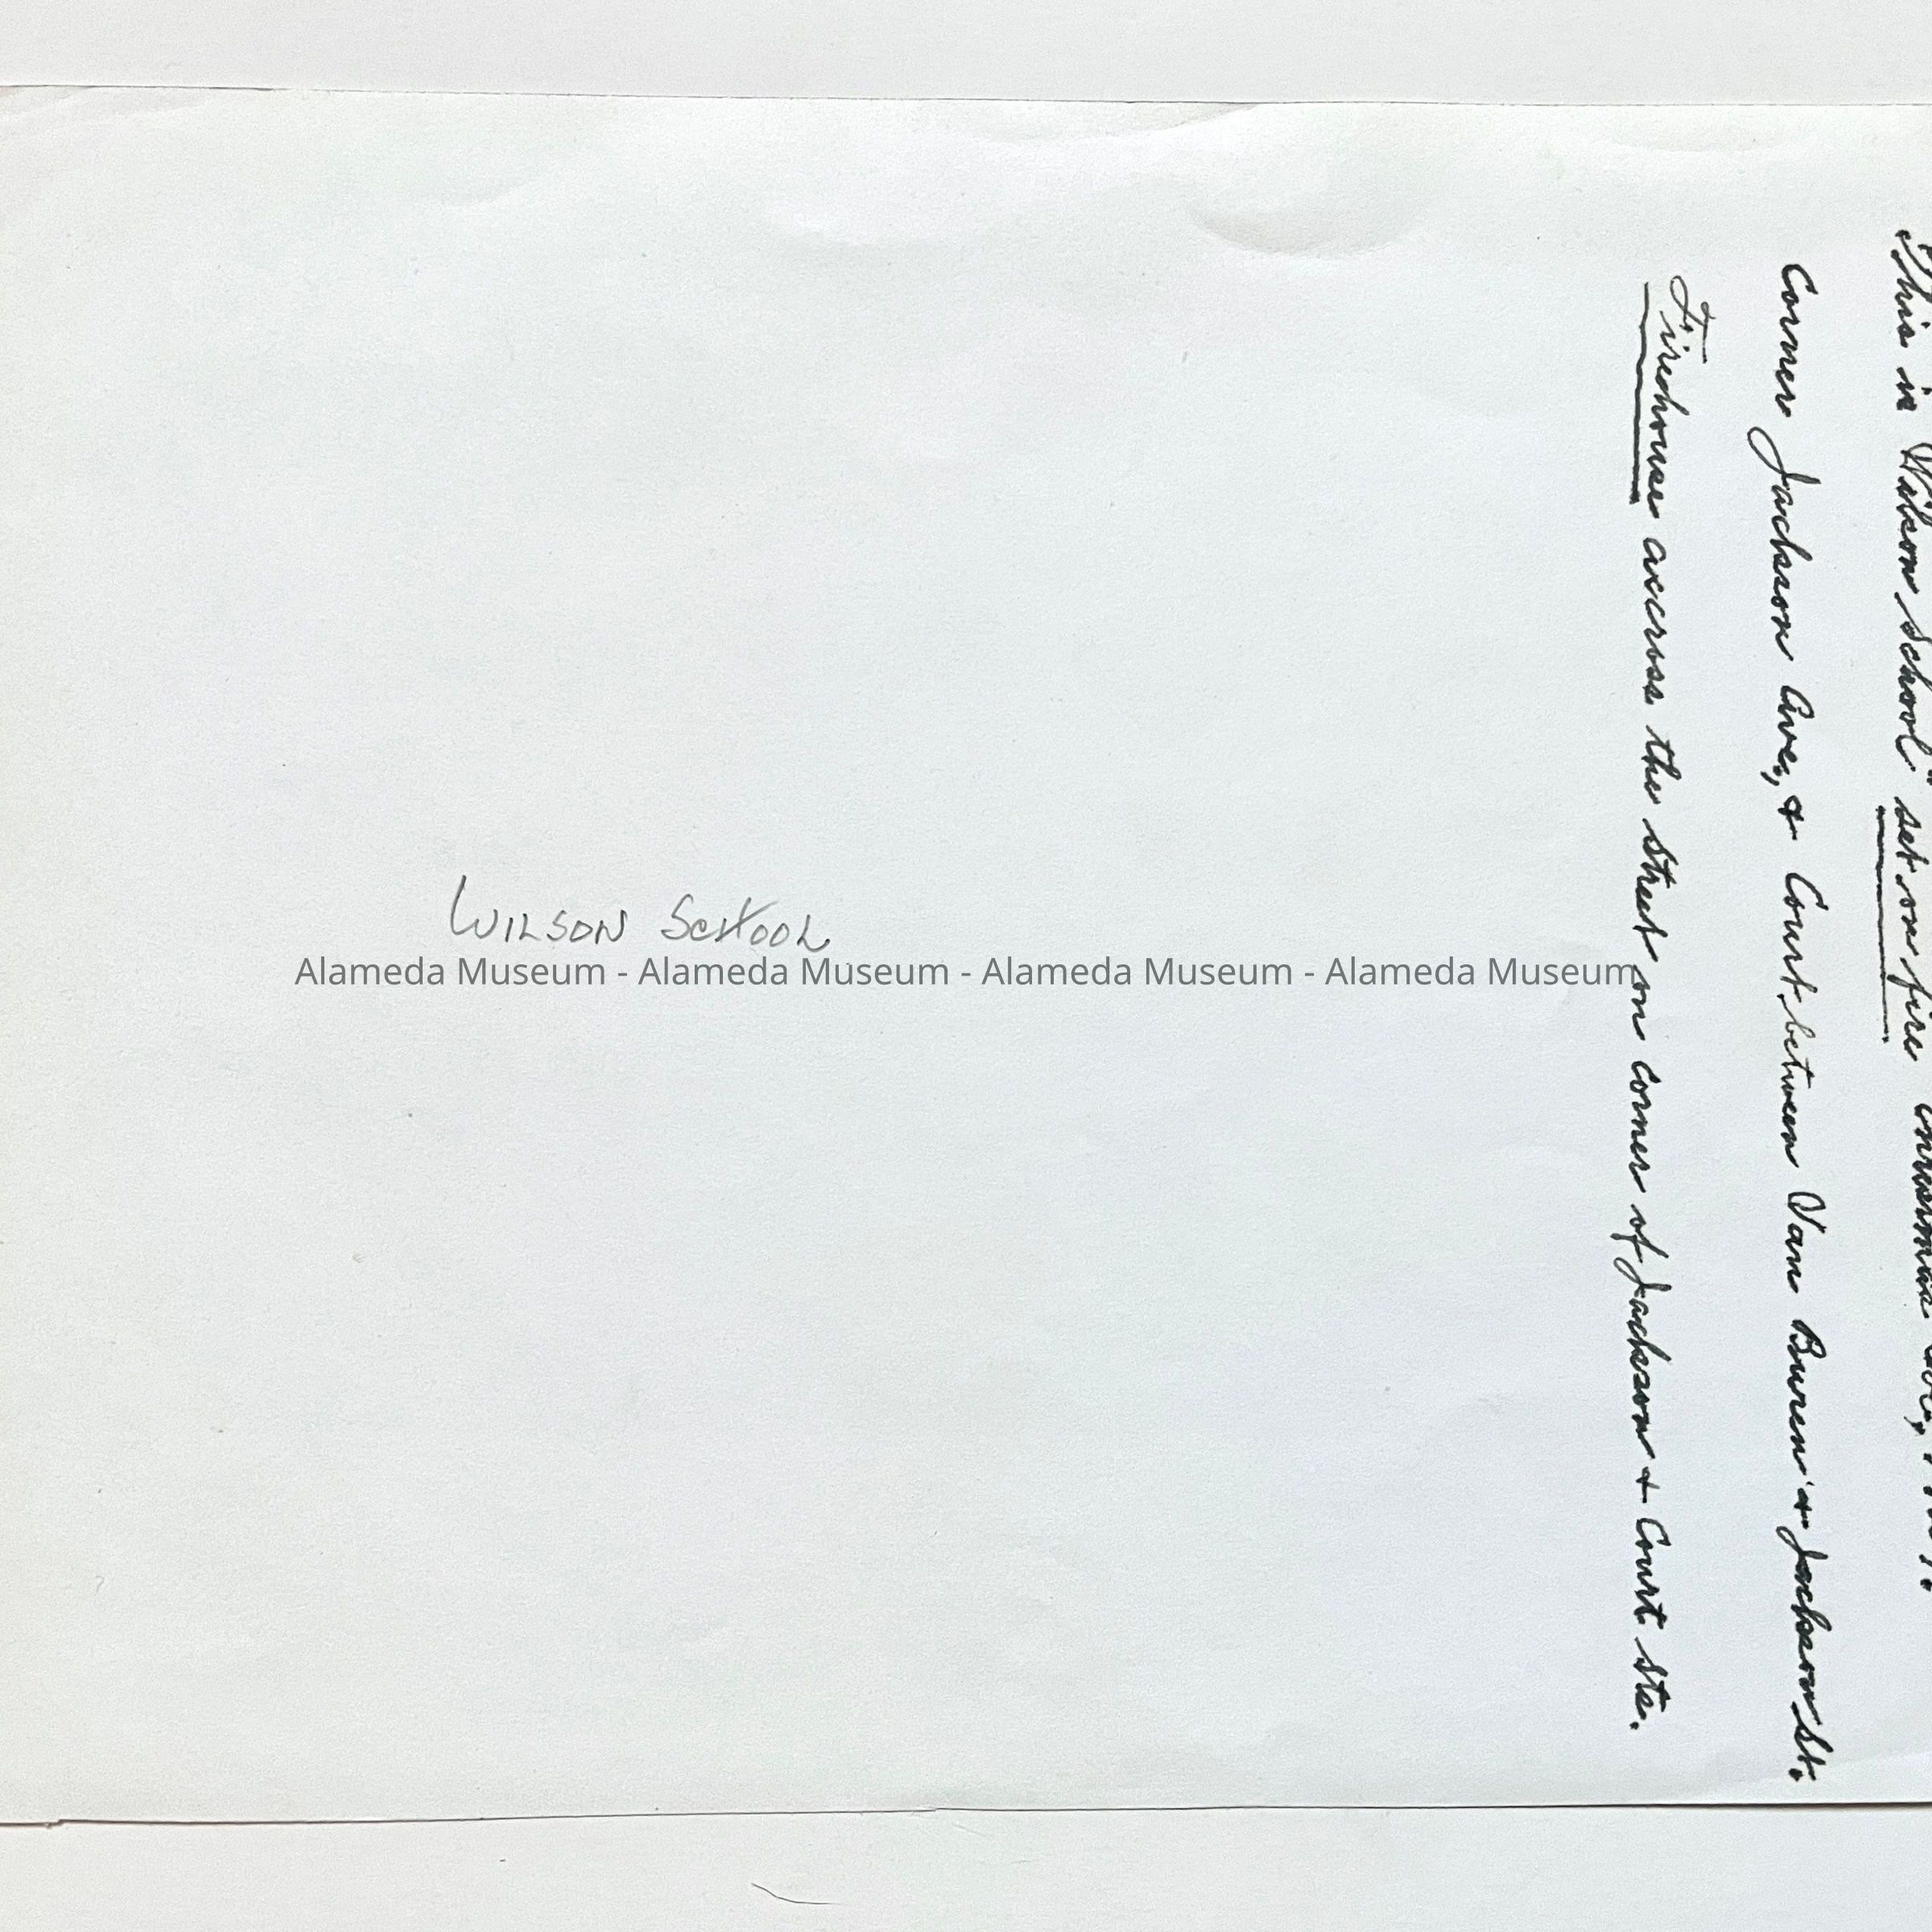 WILSON SCHOOL
Alameda Museum - Alameda Museum - Alameda Museum - Alameda Museum
This is Wilson School" set on fire
Corner Jackson Ave, & Court between Van Buren & Jackson St.
Firehouse across the street on corner of Jackson + Court sts.